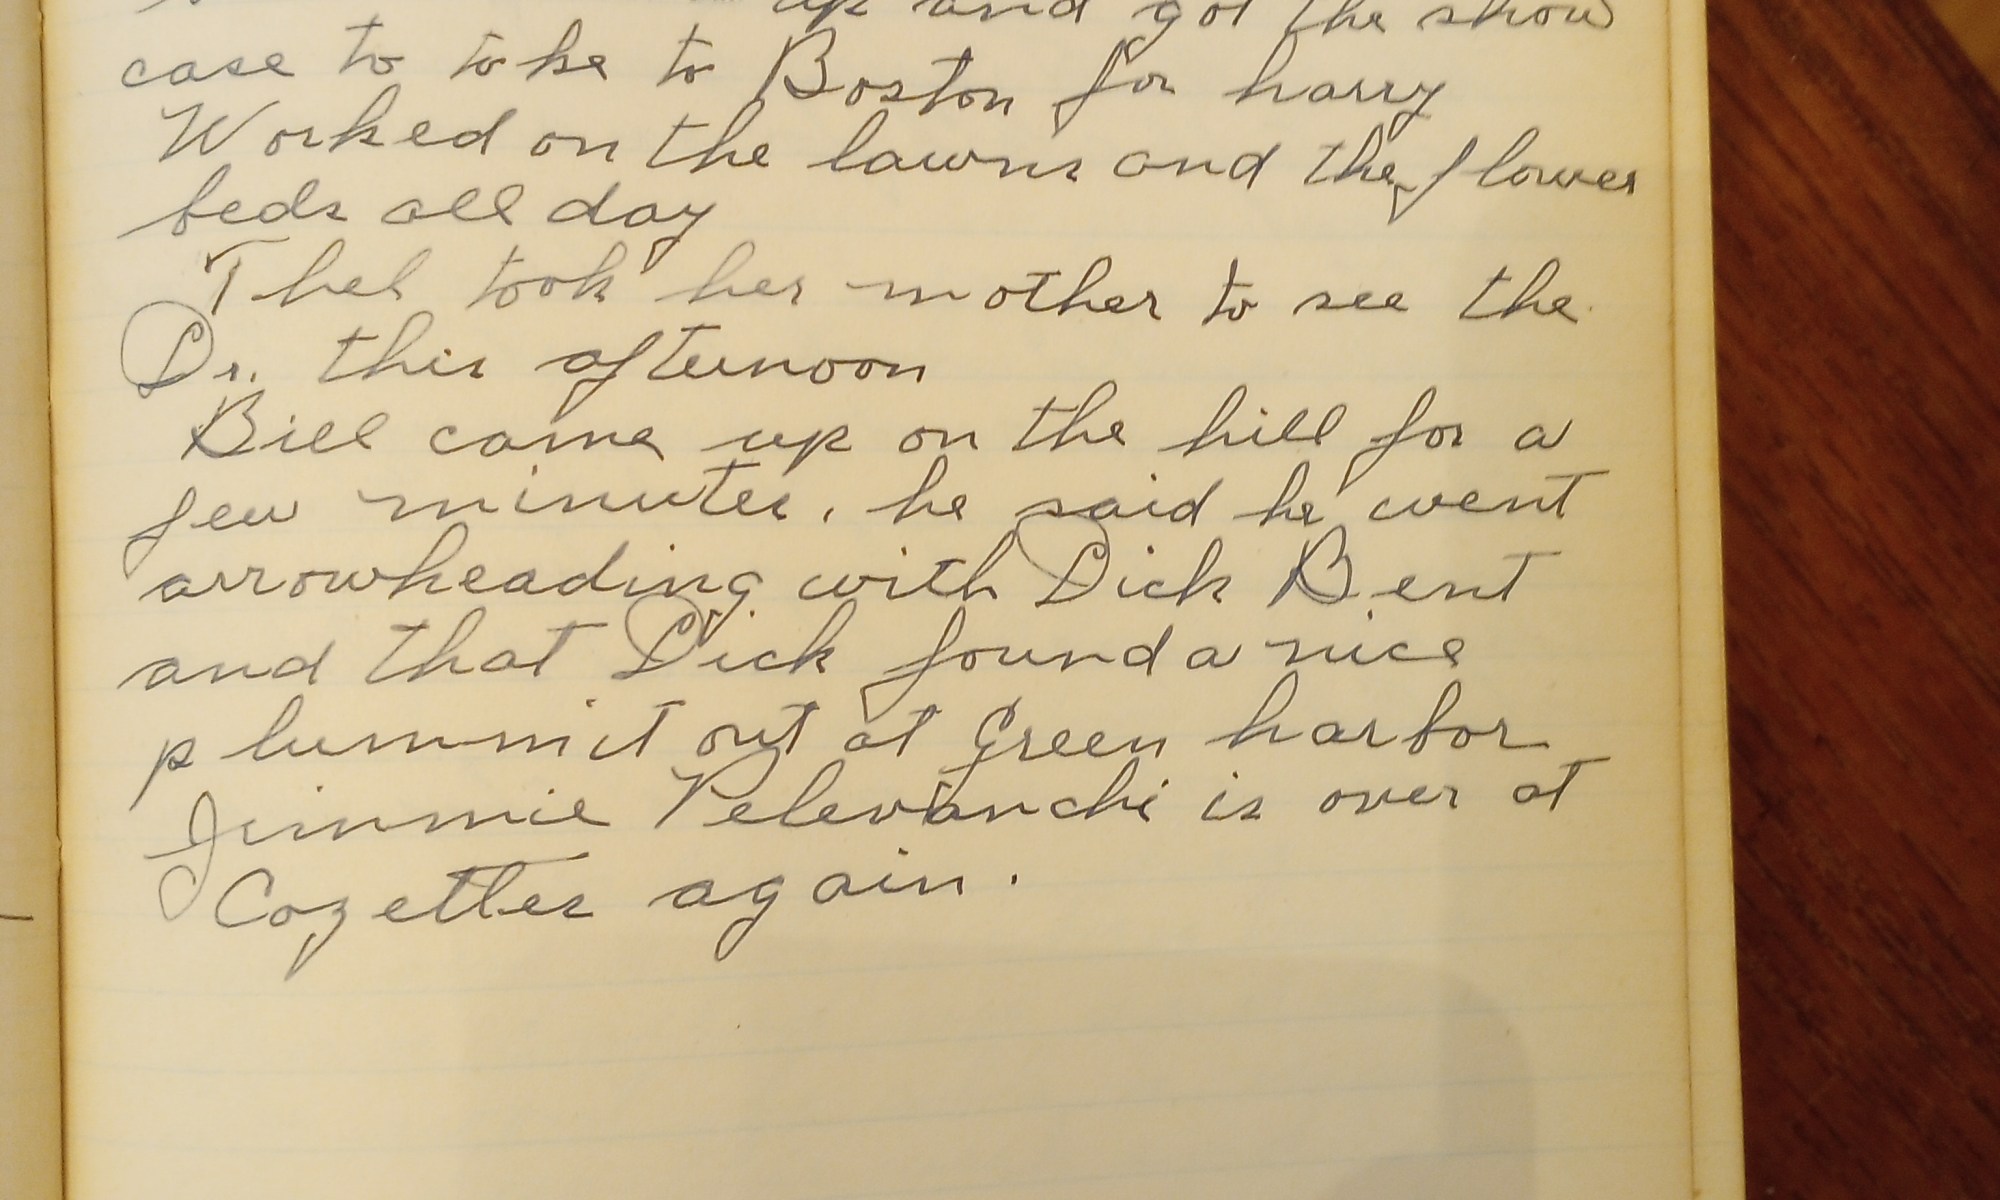 up and got the show
case to take to Boston for harry
Worked on the lawns and the flower
beds all day
Thel took her mother to see the
Dr. this afternoon
Bill came up on the hill for a
few minutes. he said he went
arrowheading with Dick Bent
and that Dick found a nice
plummit out at Green harbor
Jimmie Pelevanchi is over at
Cozettes again.